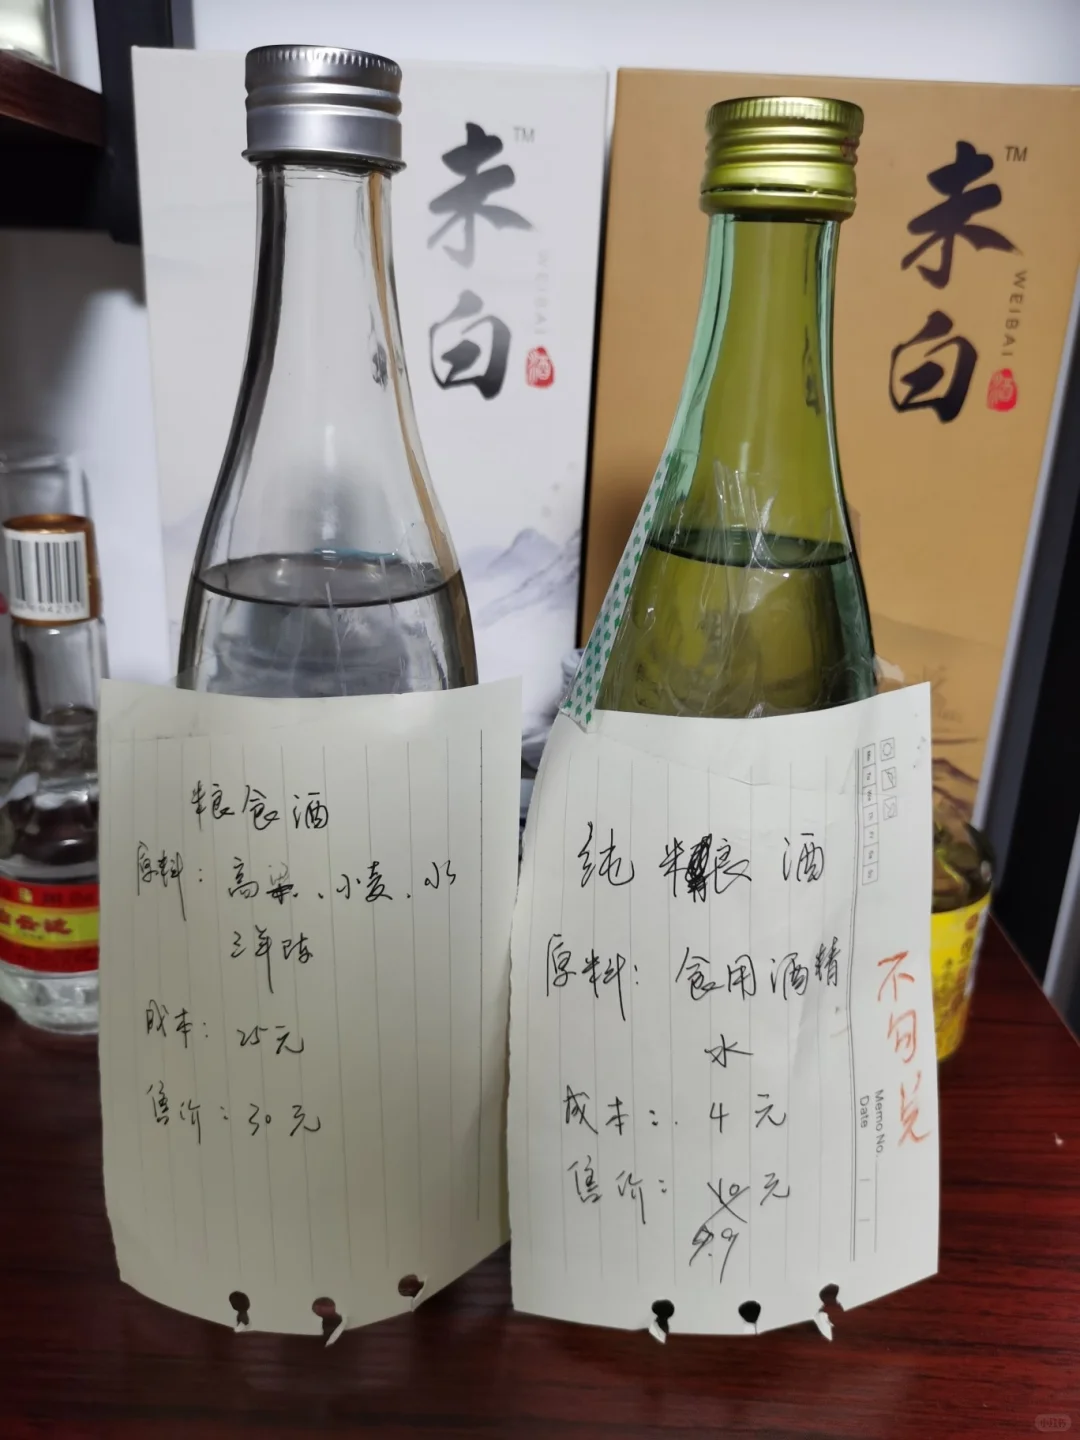 未白
TM
WEIBAI
酒
未白
TM
WEIBAI
酒
粮食酒
原料：高粱、小麦、水
三年陈
成本：25元
售价：30元
纯粮酒
原料：食用酒精
水
成本：4元
售价：10元
9.9
不勾兑
Memo No.
Date